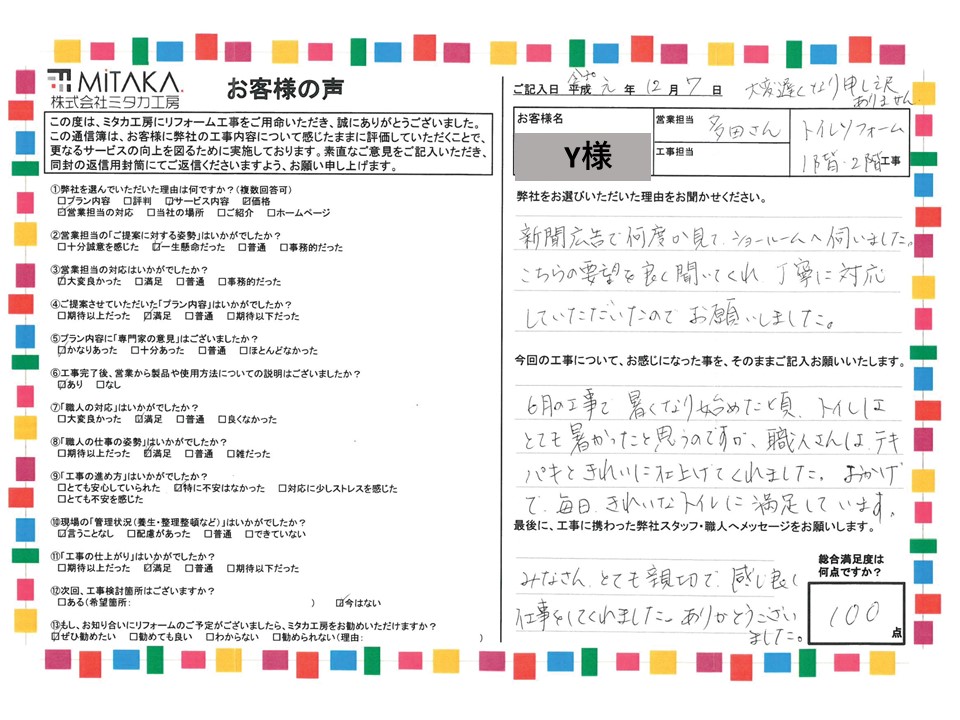 MiTAKA.
株式会社ミタカ工房
お客様の声
この度は、ミタカ工房にリフォーム工事をご用命いただき、誠にありがとうございました。
この通信簿は、お客様に弊社の工事内容について感じたままに評価していただくことで、
更なるサービスの向上を図るために実施しております。素直なご意見をご記入いただき、
同封の返信用封筒にてご返信くださいますよう、お願い申し上げます。
①弊社を選んでいただいた理由は何ですか?(複数回答可)
□プラン内容 □評判 ☑サービス内容 ☑価格
☑営業担当の対応 □当社の場所 □ご紹介 □ホームページ
②営業担当の「ご提案に対する姿勢」はいかがでしたか?
□十分誠意を感じた ☑一生懸命だった □普通 □事務的だった
③営業担当の対応はいかがでしたか?
☑大変良かった □満足 □普通 □事務的だった
④ご提案させていただいた「プラン内容」はいかがでしたか?
□期待以上だった ☑満足 □普通 □期待以下だった
⑤プラン内容に「専門家の意見」はございましたか?
☑かなりあった □十分あった □普通 □ほとんどなかった
⑥工事完了後、営業から製品や使用方法についての説明はございましたか?
☑あり □なし
⑦「職人の対応」はいかがでしたか?
□大変良かった ☑満足 □普通 □良くなかった
⑧「職人の仕事の姿勢」はいかがでしたか?
□期待以上だった ☑満足 □普通 □雑だった
⑨「工事の進め方」はいかがでしたか?
□とても安心していられた ☑特に不安はなかった □対応に少しストレスを感じた
□とても不安を感じた
⑩現場の「管理状況(養生・整理整頓など)」はいかがでしたか?
☑言うことなし □配慮があった □普通 □できていない
⑪「工事の仕上がり」はいかがでしたか?
□期待以上だった ☑満足 □普通 □期待以下だった
⑫次回、工事検討箇所はございますか?
□ある(希望箇所: ) ☑今はない
⑬もし、お知り合いにリフォームのご予定がございましたら、ミタカ工房をお勧めいただけますか?
☑ぜひ勧めたい □勧めても良い □わからない □勧められない(理由: )
令和
ご記入日 平成 元 年 12 月 7 日 大変遅くなり申し訳
ありません。
お客様名
Y様
営業担当 多田さん
工事担当
トイレリフォーム
1階・2階工事
弊社をお選びいただいた理由をお聞かせください。
新聞広告で何度か見て、ショールームへ伺いました。
こちらの要望を良く聞いてくれ、丁寧に対応
していただいたのでお願いしました。
今回の工事について、お感じになった事を、そのままご記入お願いいたします。
6月の工事で暑くなり始めた頃、トイレは
とても暑かったと思うのですが、職人さんは、テキ
パキときれいに仕上げてくれました。おかげ
で、毎日、きれいなトイレに満足しています。
最後に、工事に携わった弊社スタッフ・職人へメッセージをお願いします。
みなさん、とても親切で、感じ良く
仕事をしてくれました。ありがとうござい
ました。
総合満足度は
何点ですか?
100
点